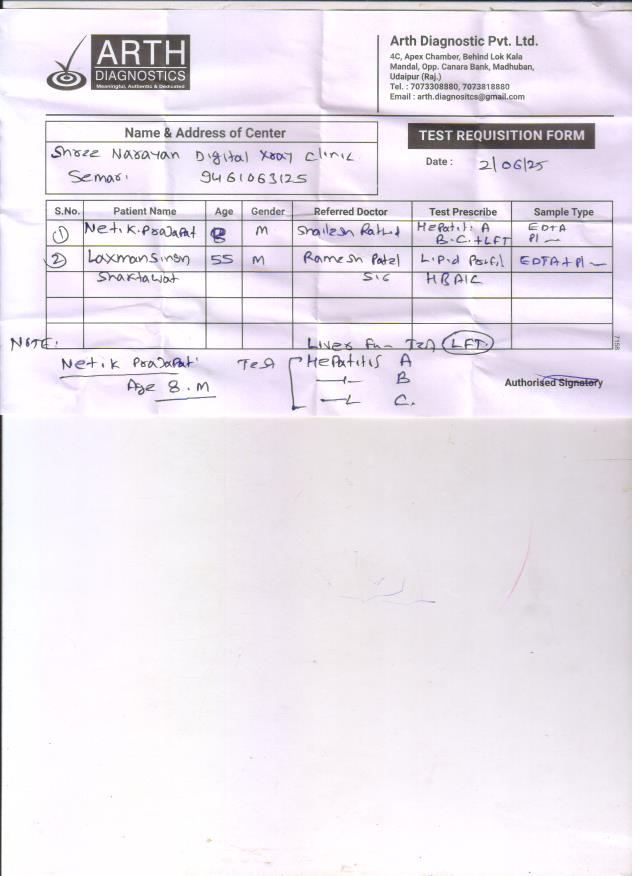 ARTH
DIAGNOSTICS
Meaningful, Authentic & Dedicated
Arth Diagnostic Pvt. Ltd.
4C, Apex Chamber, Behind Lok Kala
Mandal, Opp. Canara Bank, Madhuban,
Udaipur (Raj.)
Tel. : 7073308880, 7073818880
Email : arth.diagnositcs@gmail.com
Name & Address of Center
Shree Narayan Digital Xray Clinic
Semari 9461063125
TEST REQUISITION FORM
Date : 2/06/25
S.No. Patient Name Age Gender Referred Doctor Test Prescribe Sample Type
1 Netik.Prajapat 8 M Shailesh Hepatiti A EDTA
B.C.+LFT Pl
2 Laxmansingh 55 M Ramesh Patel Lipid Profil EDTA+Pl
Shaktawat HBA1C
NOTE: Liver Fun Test LFT.
Netik Prajapati Test Hepatitis A
Age 8.M B
C.
Authorised Signatory
7158